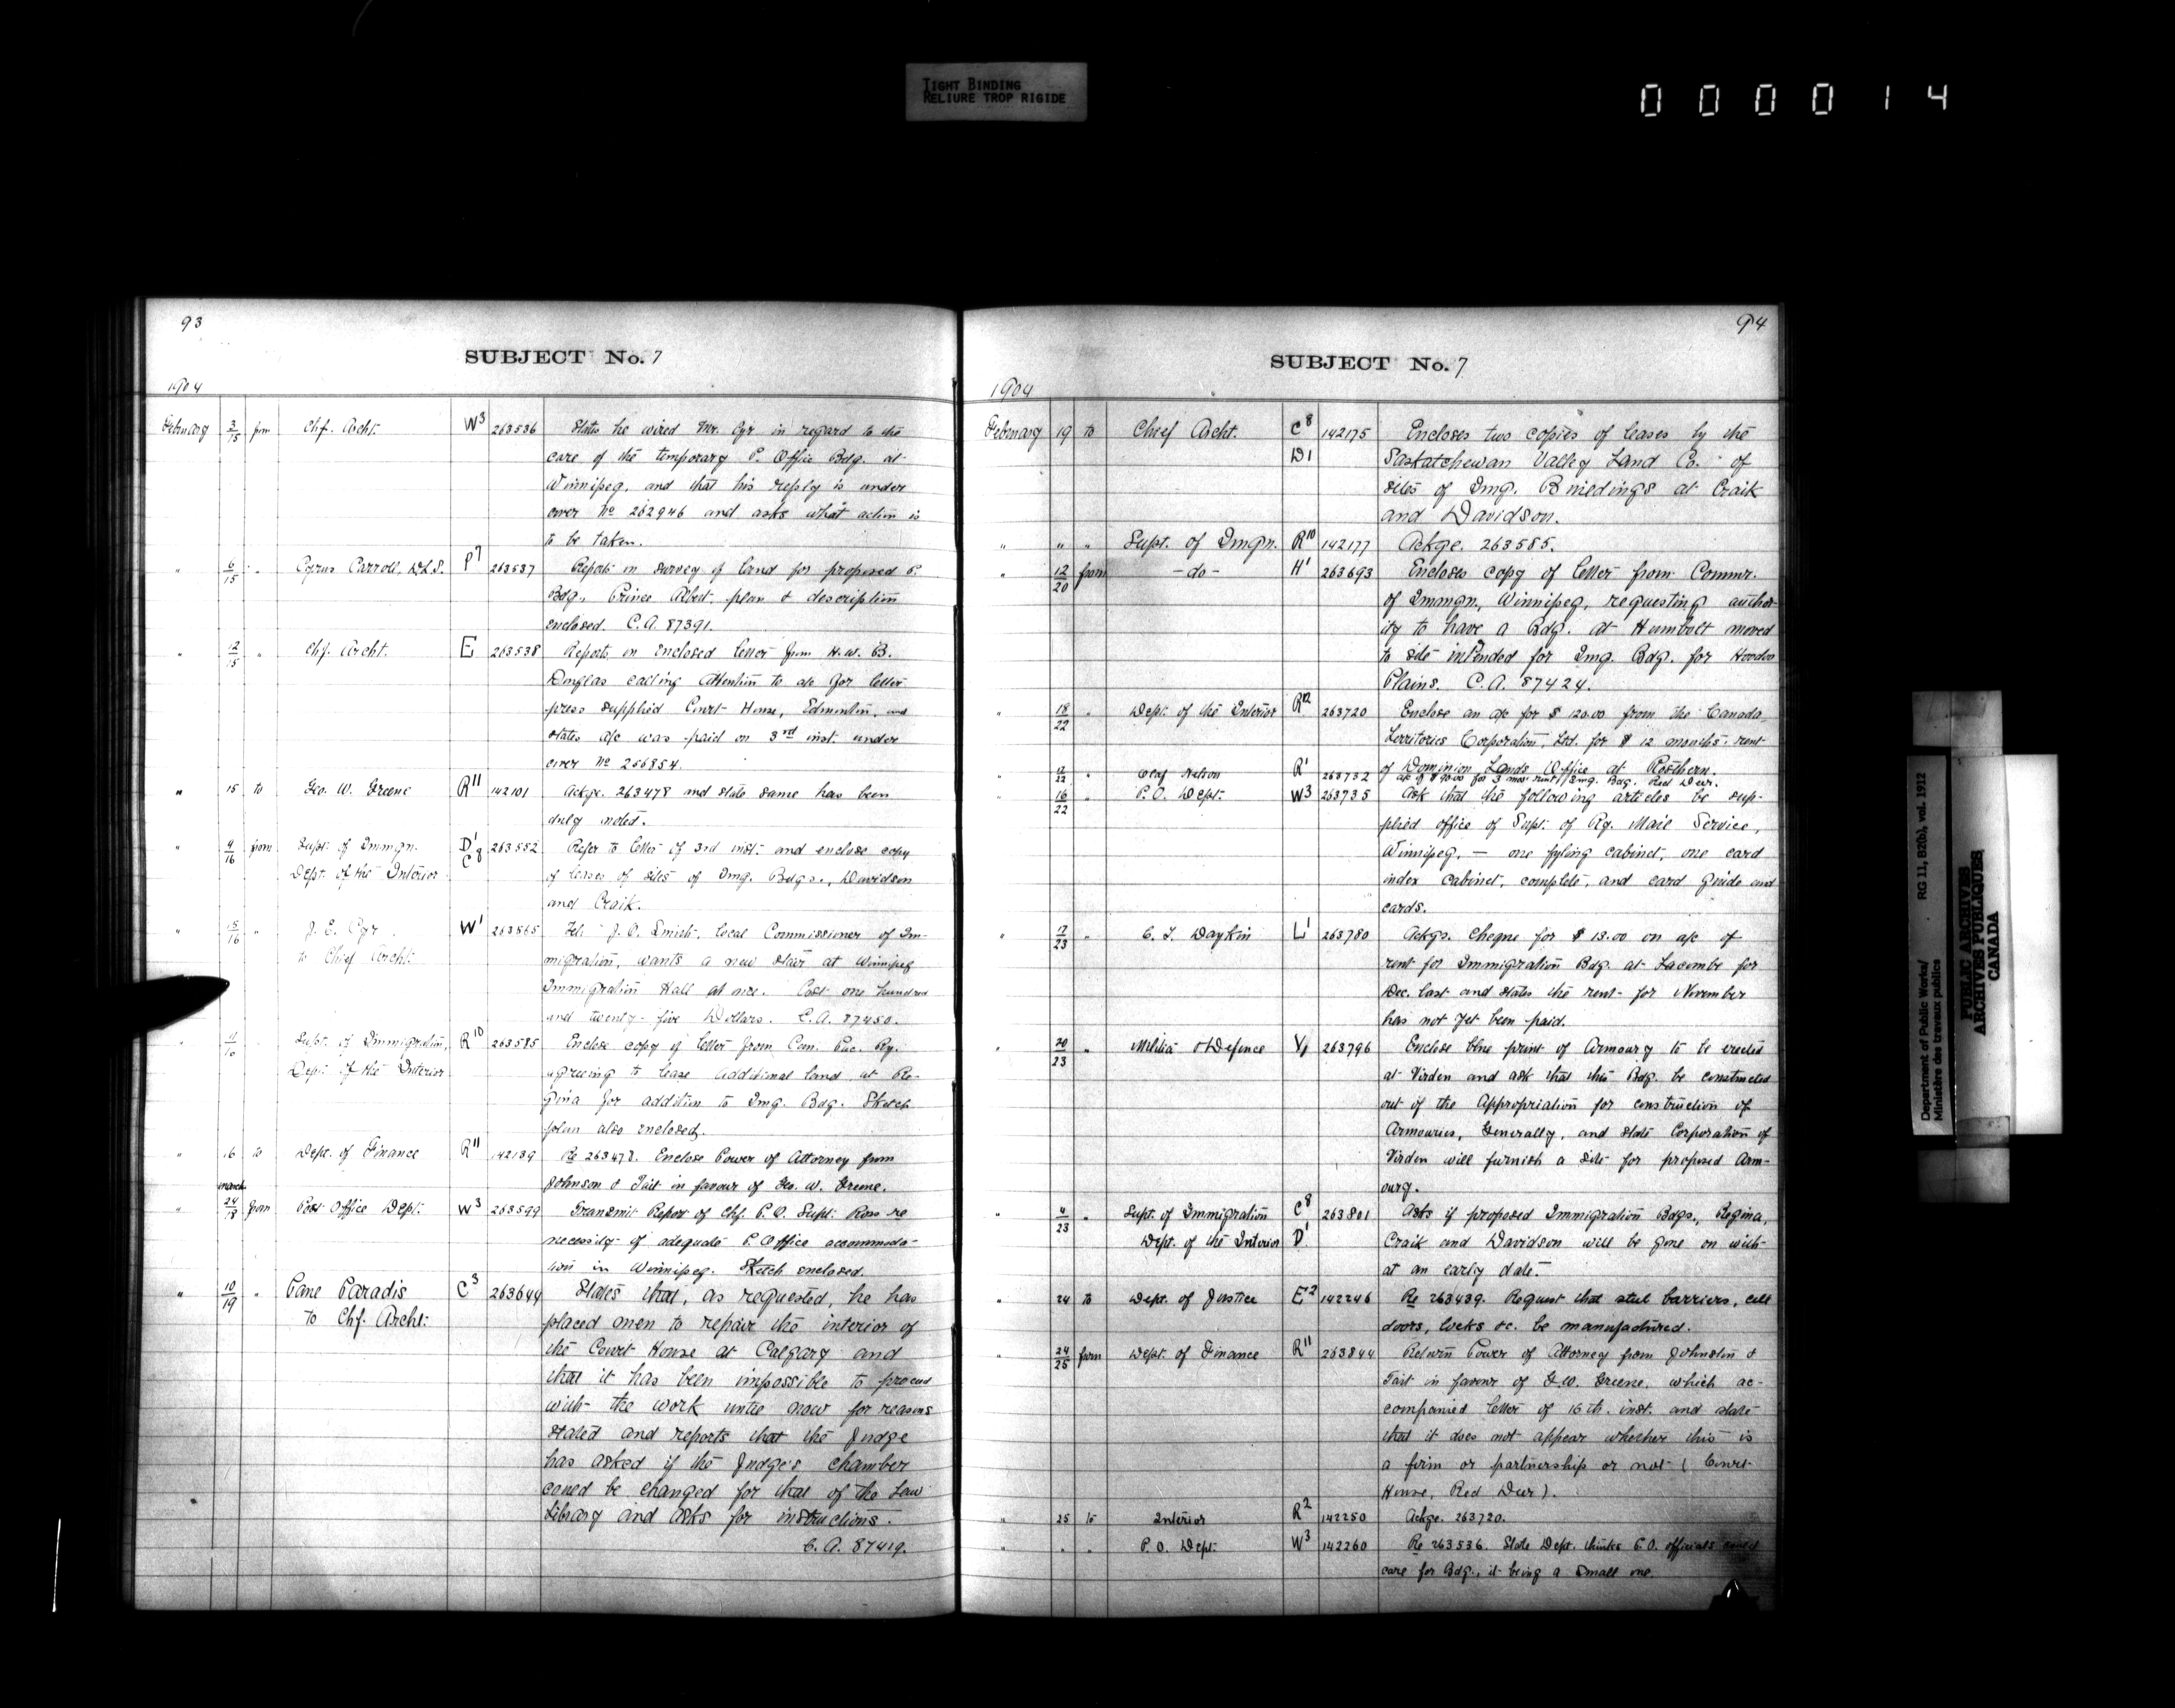 TIGHT BINDING
RELIURE TROP RIGIDE
000014
93
SUBJECT No. 7
1904
February 3/15 from Chf. Archt. W3 263536 States he wired Mr. Cyr in regard to the
care of the temporary P. Office Bdg. at
Winnipeg, and that his reply is under
cover No 262946 and asks what action is
to be taken.
" 6/15 " Cyrus Carroll, D.L.S. P7 263537 Reports on survey of land for proposed P.
Bdg., Prince Albert, plan & description
enclosed. C.A. 87391.
" 12/15 " Chf. Archt. E 263538 Reports on enclosed letter from H. W. B.
Douglas calling attention to a/c for letter
press supplied Court House, Edmonton, and
states a/c was paid on 3rd inst. under
cover No 256854.
" 15 to Geo. W. Greene R11 142101 Ackge. 263478 and state same has been
duly noted.
" 4/16 from Supt. of Immgn. D1 263552 Refer to letter of 3rd inst. and enclose copy
Dept. of the Interior C8 of leases of sites of Img. Bdgs., Davidson
and Craik.
" 15/16 " J. E. Cyr W1 263565 Tel. J. O. Smith, local Commissioner of Im-
to Chief Archt. migration, wants a new stair at Winnipeg
Immigration Hall at once. Cost one hundred
and twenty-five Dollars. C.A. 87450.
" 11/16 " Supt. of Immigration, R10 263585 Enclose copy of letter from Can. Pac. Ry.
Dept. of the Interior agreeing to lease additional land at Re-
gina for addition to Img. Bdg. Sketch
plan also enclosed.
" 16 to Dept. of Finance R11 142139 Re 263478. Enclose Power of Attorney from
Johnson & Tait in favour of Geo. W. Greene.
March
" 24/18 from Post Office Dept. W3 263599 Transmit Report of Chf. P.O. Supt. Ross re
necessity of adequate P. Office accommoda-
tion in Winnipeg. Sketch enclosed.
" 10/19 " Pane Paradis C3 263644 States that, as requested, he has
to Chf. Archt. placed men to repair the interior of
the Court House at Calgary and
that it has been impossible to proceed
with the work until now for reasons
stated and reports that the Judge
has asked if the Judge's chamber
could be changed for that of the Law
Library and asks for instructions.
C.A. 87419.
94
SUBJECT No. 7
1904
February 19 to Chief Archt. C8 142175 Encloses two copies of leases by the
D1 Saskatchewan Valley Land Co. of
sites of Img. Buildings at Craik
and Davidson.
" " " Supt. of Immgn. R10 142177 Ackge. 263585.
" 12/20 from -do- H1 263693 Encloses copy of letter from Commr.
of Immgn, Winnipeg, requesting author-
ity to have a Bdg. at Humbolt moved
to site intended for Img. Bdg. for Hoodoo
Plains. C.A. 87424.
" 18/22 " Dept. of the Interior R12 263720 Enclose an a/c for $120.00 from the Canada
Territories Corporation, Ltd. for 12 months rent
of Dominion Lands Office at Rosthern.
" 12/22 " Olaf Nelson R1 263732 a/c of $90.00 for 3 mos. rent, Img. Bdg. Red Deer.
" 16/22 " P.O. Dept. W3 263735 Ask that the following articles be sup-
plied office of Supt. of Ry. Mail Service,
Winnipeg, — one fyling cabinet, one card
index cabinet, complete, and card guide and
cards.
" 17/23 " C. T. Daykin L1 263780 Ackgs. cheque for $13.00 on a/c of
rent for Immigration Bdg. at Lacombe for
Dec. last and states the rent for November
has not yet been paid.
" 20/23 " Militia & Defence V1 263796 Enclose blue print of Armoury to be erected
at Virden and ask that this Bdg. be constructed
out of the Appropriation for construction of
Armouries, Generally, and state Corporation of
Virden will furnish a site for proposed Arm-
oury.
" 4/23 " Supt. of Immigration C8 263801 Asks if proposed Immigration Bdgs., Regina,
Dept. of the Interior D1 Craik and Davidson will be gone on with
at an early date.
" 24 to Dept. of Justice E2 142246 Re 263439. Request that steel barriers, cell
doors, locks &c. be manufactured.
" 24/25 from Dept. of Finance R11 263844 Return Power of Attorney from Johnston &
Tait in favour of G. W. Greene, which ac-
companied letter of 16th. inst. and state
that it does not appear whether this is
a firm or partnership or not (Court
House, Red Deer).
" 25 to Interior R2 142250 Ackge. 263720.
" " " P.O. Dept. W3 142260 Re 263536. State Dept. thinks P.O. officials could
care for Bdg., it being a small one.
Department of Public Works/ RG 11, B2(b), vol. 1912
Ministère des travaux publics
PUBLIC ARCHIVES
ARCHIVES PUBLIQUES
CANADA